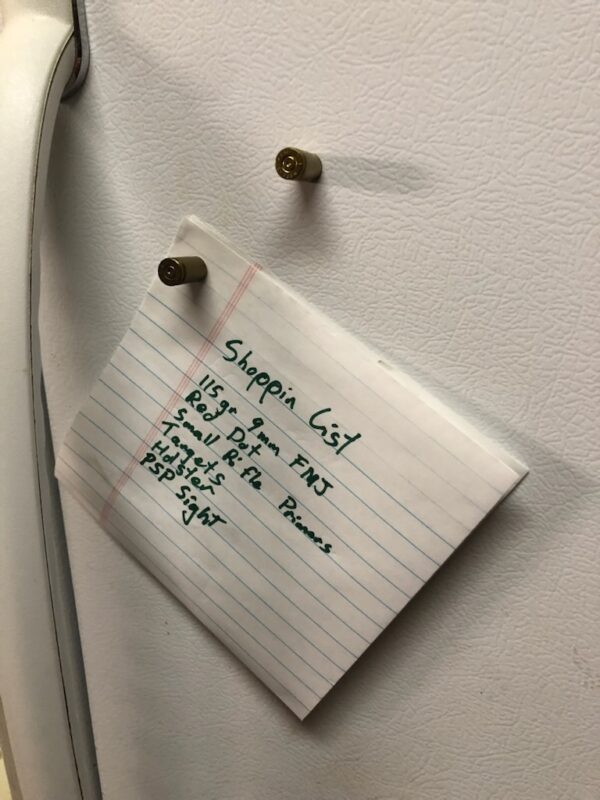 Shoppin List
115 gr 9mm FMJ
Red Dot
Small Rifle Primers
Targets
Holster
PSP Sight